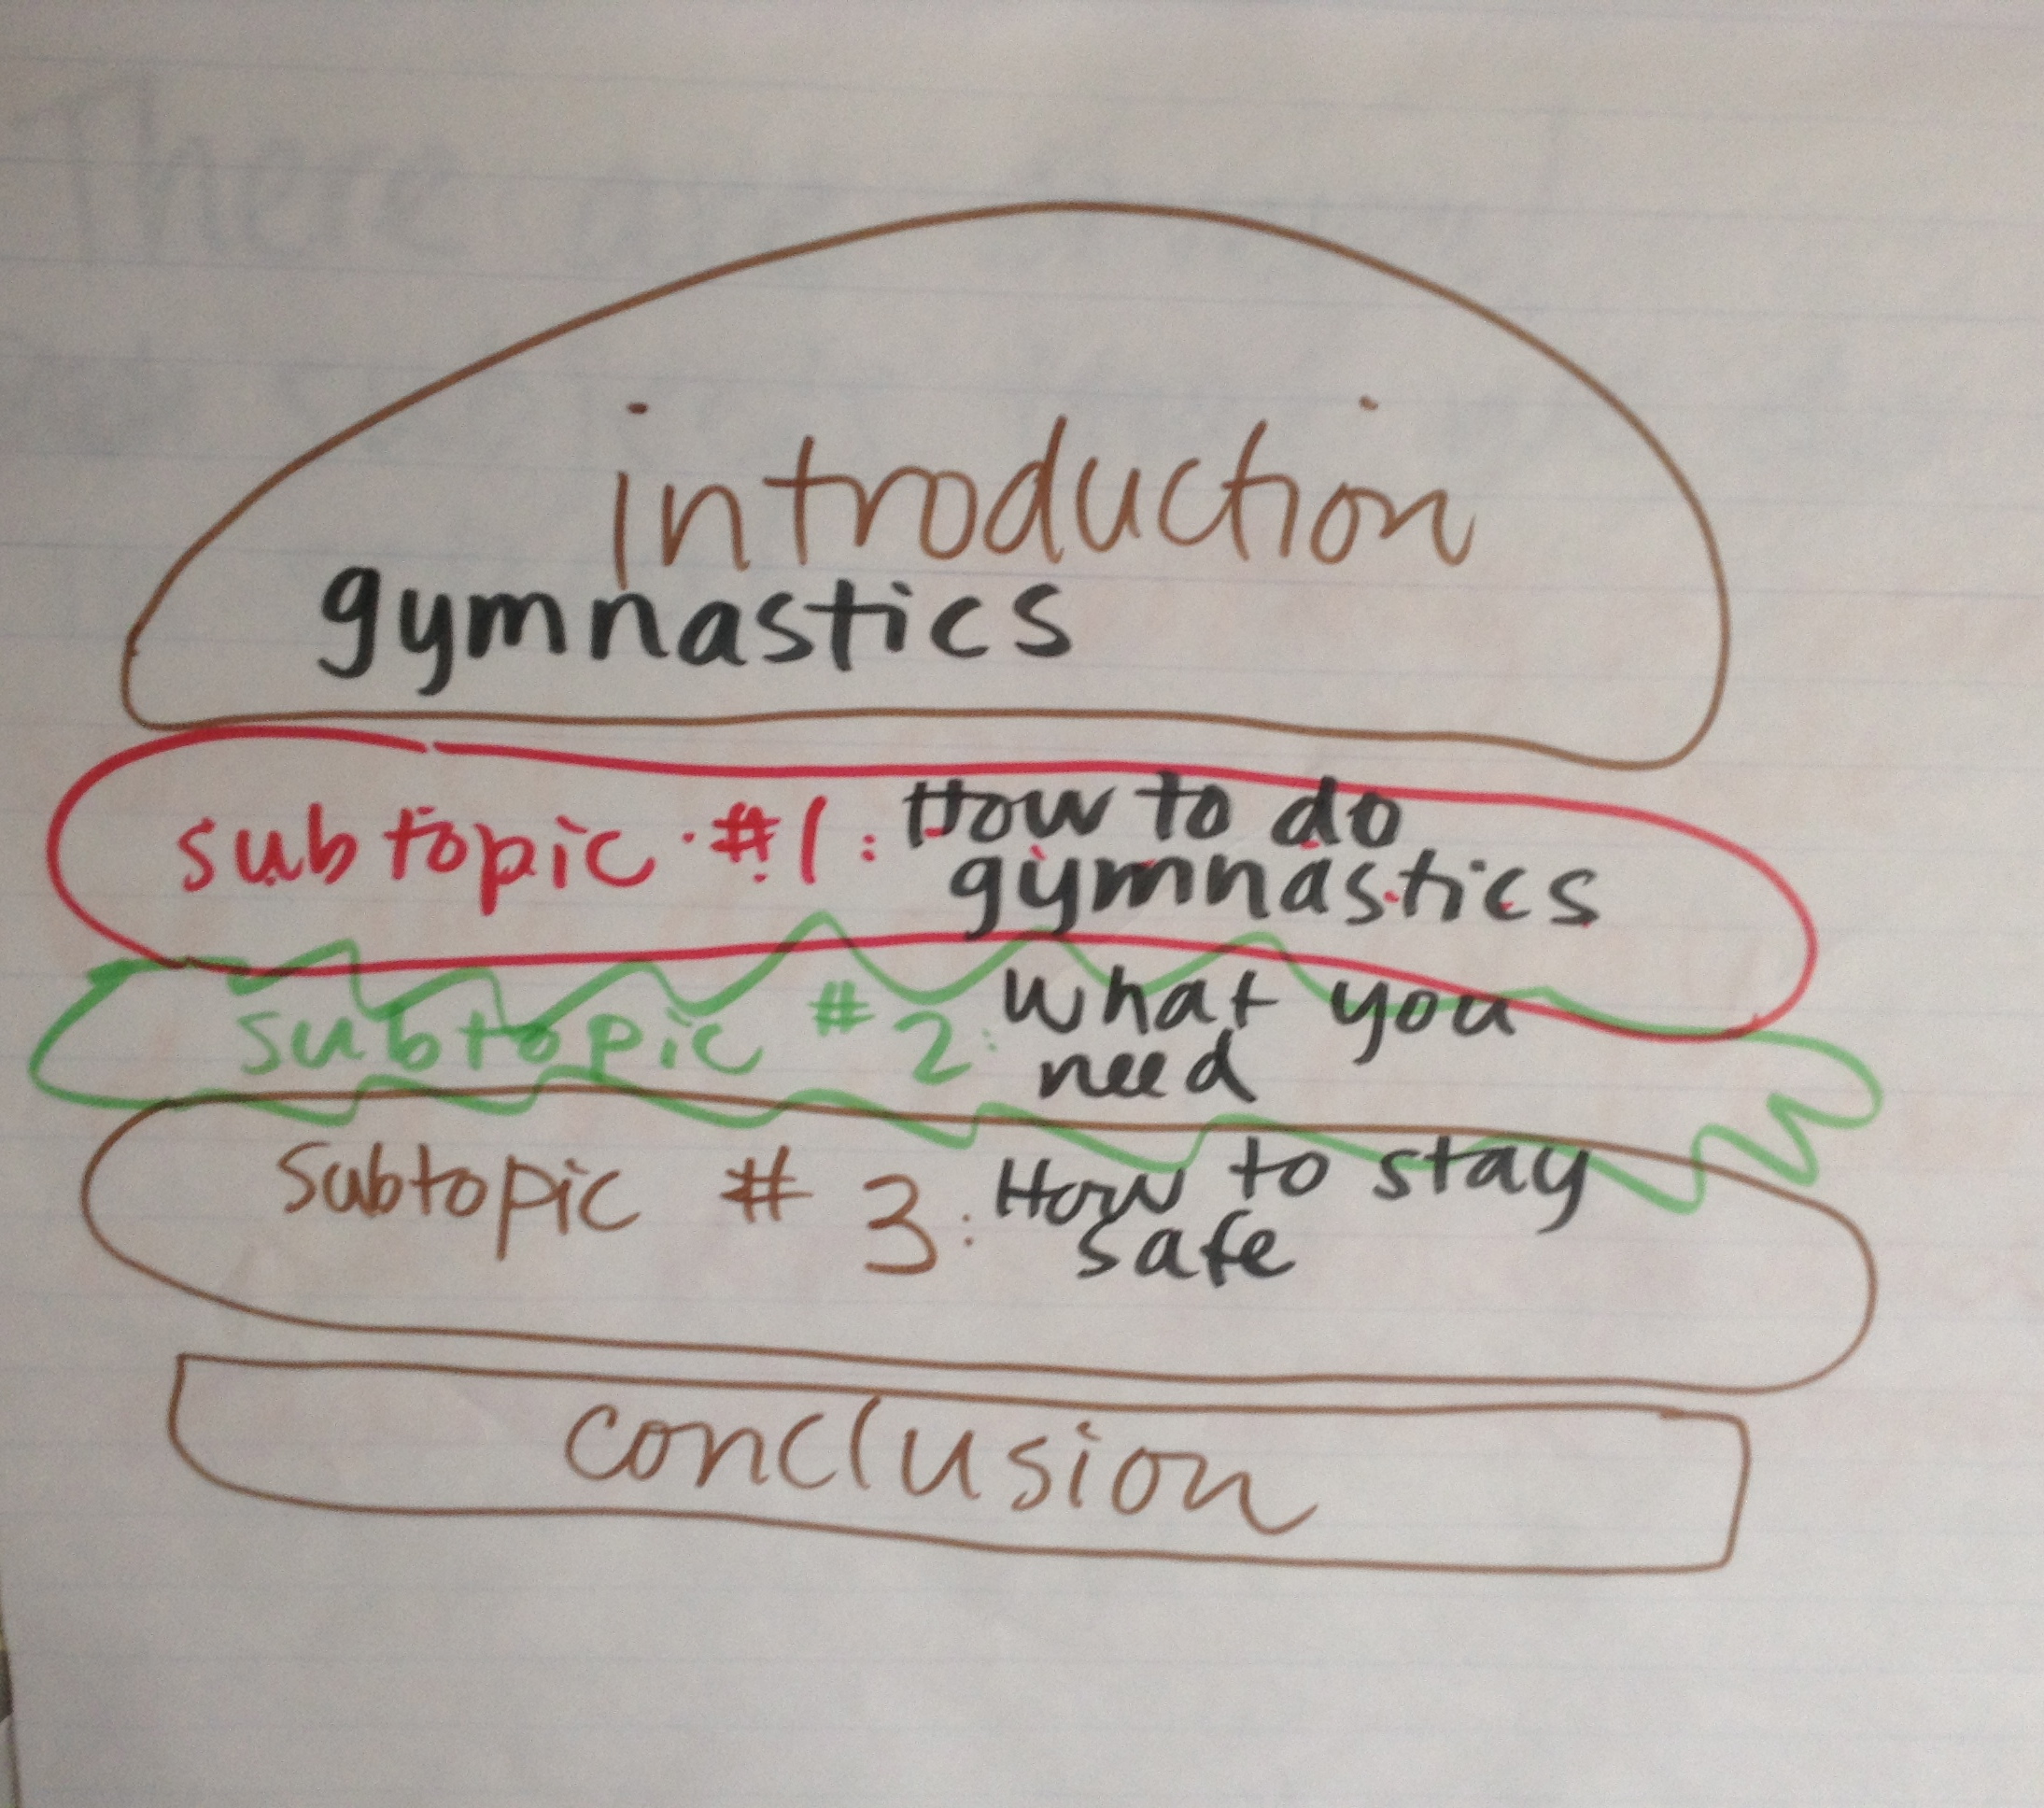 There are
introduction
gymnastics
subtopic #1: How to do
gymnastics
subtopic #2: What you
need
Subtopic #3: How to stay
safe
conclusion